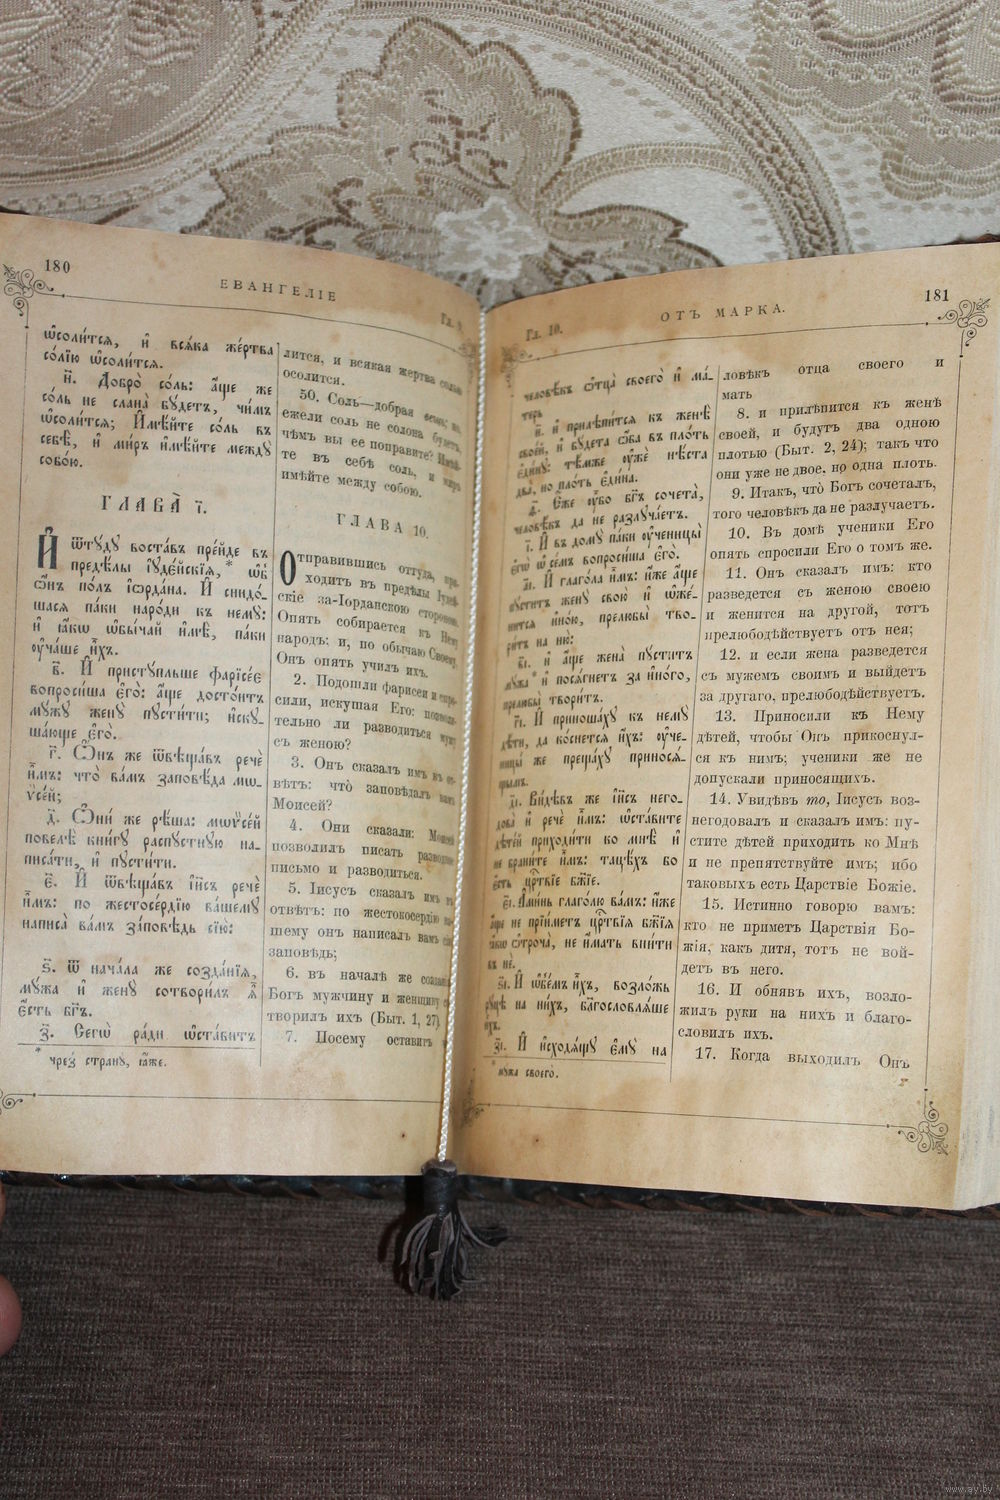 180
ЕВАНГЕЛІЕ
Гл. 9.
ѡ҆соли́тсѧ, и҆ всѧ́ка же́ртва
со́лїю ѡ҆соли́тсѧ.
н҃. Добро̀ со́ль: а҆́ще же
со́ль не слана̀ бꙋ́детъ, чи́мъ
ѡ҆соли́тсѧ; И҆мѣ́йте со́ль въ
себѣ̀, и҆ ми́ръ и҆мѣ́йте междꙋ̀
собо́ю.
ГЛАВА̀ і҃.
И҆ ѿтꙋ́дꙋ воста́въ прїи́де въ
предѣ́лы і҆ꙋде́йскїѧ,* ѡ҆б̾
ѡ҆́нъ по́лъ і҆ѻрда́на. И҆ снидо́-
шасѧ па́ки наро́ди къ немꙋ̀:
и҆ ꙗ҆́кѡ ѡ҆бы́чай и҆мѣ̀, па́ки
ᲂу҆ча́ше и҆̀хъ.
в҃. И҆ пристꙋ́пльше фарїсе́є
вопроси́ша є҆го̀: а҆́ще досто́итъ
мꙋ́жꙋ женꙋ̀ пꙋсти́ти; и҆скꙋ-
ша́юще є҆го̀.
г҃. Ѻ҆́нъ же ѿвѣща́въ речѐ
и҆̀мъ: что̀ ва́мъ заповѣ́да мѡ-
ѷсе́й;
д҃. Ѻ҆ни́ же рѣ́ша: мѡѷсе́й
повелѣ̀ кни́гꙋ распꙋ́стнꙋю на-
писа́ти, и҆ пꙋсти́ти.
є҃. И҆ ѿвѣща́въ і҆и҃съ речѐ
и҆̀мъ: по жестосе́рдїю ва́шемꙋ
написа̀ ва́мъ за́повѣдь сїю̀:
ѕ҃. ѿ нача́ла же созда́нїѧ,
мꙋ́жа и҆ женꙋ̀ сотвори́лъ ѧ҆̀
є҆́сть бг҃ъ.
з҃. Сегѡ̀ ра́ди ѡ҆ста́витъ
* чрез̾ странꙋ̀, ꙗ҆́же.
лится, и всякая жертва солью
осолится.
50. Соль—добрая вещь; но
ежели соль не солона будетъ,
чѣмъ вы ее поправите? Имѣй-
те въ себѣ соль, и миръ
имѣйте между собою.
ГЛАВА 10.
Отправившись оттуда, при-
ходитъ въ предѣлы Іудей-
скіе за-Іорданскою стороною.
Опять собирается къ Нему
народъ; и, по обычаю Своему,
Онъ опять училъ ихъ.
2. Подошли фарисеи и спро-
сили, искушая Его: позволи-
тельно ли разводиться мужу
съ женою?
3. Онъ сказалъ имъ въ от-
вѣтъ: чтò заповѣдалъ вамъ
Моисей?
4. Они сказали: Моисей
позволилъ писать разводное
письмо и разводиться.
5. Іисусъ сказалъ имъ въ
отвѣтъ: по жестокосердію ва-
шему онъ написалъ вамъ сію
заповѣдь;
6. въ началѣ же созданія,
Богъ мужчину и женщину со-
творилъ ихъ (Быт. 1, 27).
7. Посему оставитъ
Гл. 10.
ОТЪ МАРКА.
181
человѣ́къ ѻ҆тца̀ своего̀ и҆ ма́-
терь
и҃. и҆ прилѣпи́тсѧ къ женѣ̀
свое́й, и҆ бꙋ́дета ѻ҆́ба въ пло́ть
є҆ди́нꙋ: тѣ́мже ᲂу҆жѐ нѣ́ста
два̀, но пло́ть є҆ди́на.
ѳ҃. Є҆́же ᲂу҆̀бо бг҃ъ сочета̀,
человѣ́къ да не разлꙋча́етъ.
і҃. И҆ въ домꙋ̀ па́ки ᲂу҆чн҃цы̀
є҆гѡ̀ ѡ҆ се́мъ вопроси́ша є҆го̀.
а҃і. И҆ глаго́ла и҆̀мъ: и҆́же а҆́ще
пꙋ́ститъ женꙋ̀ свою̀ и҆ ѡ҆же́-
нитсѧ и҆но́ю, прелюбы̀ тво-
ри́тъ на ню̀:
в҃і. и҆ а҆́ще жена̀ пꙋ́ститъ
мꙋ́жа* и҆ посѧ́гнетъ за и҆но́го,
прелюбы̀ твори́тъ.
г҃і. И҆ приноша́хꙋ къ немꙋ̀
дѣ́ти, да ко́снетсѧ и҆́хъ: ᲂу҆че-
ницы́ же преща́хꙋ приносѧ́-
щымъ.
д҃і. Ви́дѣвъ же і҆и҃съ него-
дова̀ и҆ речѐ и҆̀мъ: ѡ҆ста́вите
дѣте́й приходи́ти ко мнѣ̀ и҆
не брани́те и҆̀мъ: тацѣ́хъ бо
є҆́сть црⷭ҇твїе бж҃їе.
є҃і. А҆ми́нь глаго́лю ва́мъ: и҆́же
а҆́ще не прїи́метъ црⷭ҇твїѧ бж҃їѧ
ꙗ҆́кѡ ѻ҆троча̀, не и҆́мать вни́ти
въ нѐ.
ѕ҃і. И҆ ѡ҆б̾е́мъ и҆̀хъ, возло́жь
рꙋ́цѣ на ни́хъ, бл҃гословлѧ́ше
и҆̀хъ.
з҃і. И҆ и҆сходѧ́щꙋ є҆мꙋ̀ на
* мꙋ́жа своего̀.
ловѣкъ отца своего и
мать
8. и прилѣпится къ женѣ
своей, и будутъ два одною
плотью (Быт. 2, 24); такъ что
они уже не двое, но одна плоть.
9. Итакъ, чтò Богъ сочеталъ,
того человѣкъ да не разлучаетъ.
10. Въ домѣ ученики Его
опять спросили Его о томъ же.
11. Онъ сказалъ имъ: кто
разведется съ женою своею
и женится на другой, тотъ
прелюбодѣйствуетъ отъ нея;
12. и если жена разведется
съ мужемъ своимъ и выйдетъ
за другаго, прелюбодѣйствуетъ.
13. Приносили къ Нему
дѣтей, чтобы Онъ прикоснул-
ся къ нимъ; ученики же не
допускали приносящихъ.
14. Увидѣвъ то, Іисусъ воз-
негодовалъ и сказалъ имъ: пу-
стите дѣтей приходить ко Мнѣ
и не препятствуйте имъ; ибо
таковыхъ есть Царствіе Божіе.
15. Истинно говорю вамъ:
кто не приметъ Царствія Бо-
жія, какъ дитя, тотъ не вой-
детъ въ него.
16. И обнявъ ихъ, возло-
жилъ руки на нихъ и благо-
словилъ ихъ.
17. Когда выходилъ Онъ
www.ay.by